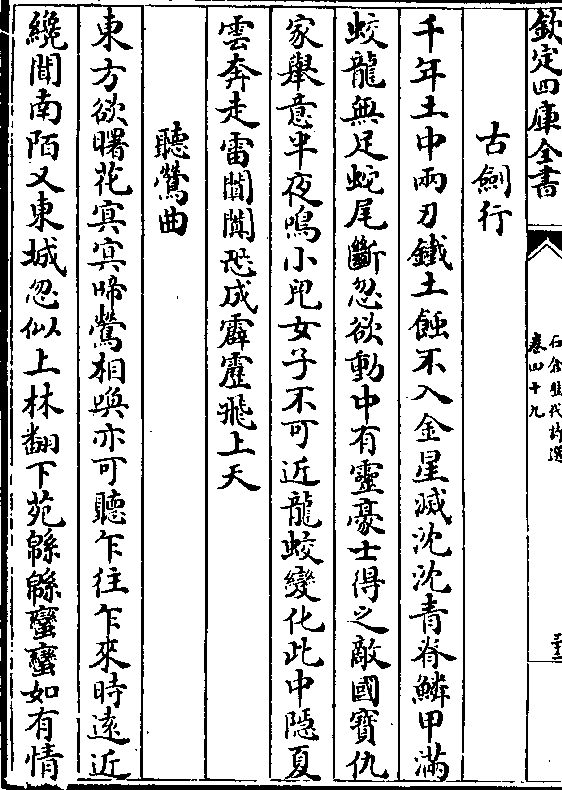 欽定四庫全書
石倉歴代詩選
卷四十九
古劍行
千年土中兩刃鐵土蝕不入金星滅沈沈青脊鱗甲滿
蛟龍無足蛇尾斷忽欲動中有靈豪士得之敵國寶仇
家舉意半夜鳴小兒女子不可近龍蛟變化此中隱夏
雲奔走雷闐闐恐成霹靂飛上天
聽鶯曲
東方欲曙花㝠㝠啼鶯相喚亦可聽乍往乍來時遠近
纔聞南陌又東城忽似上林翻下苑緜緜蠻蠻如有情